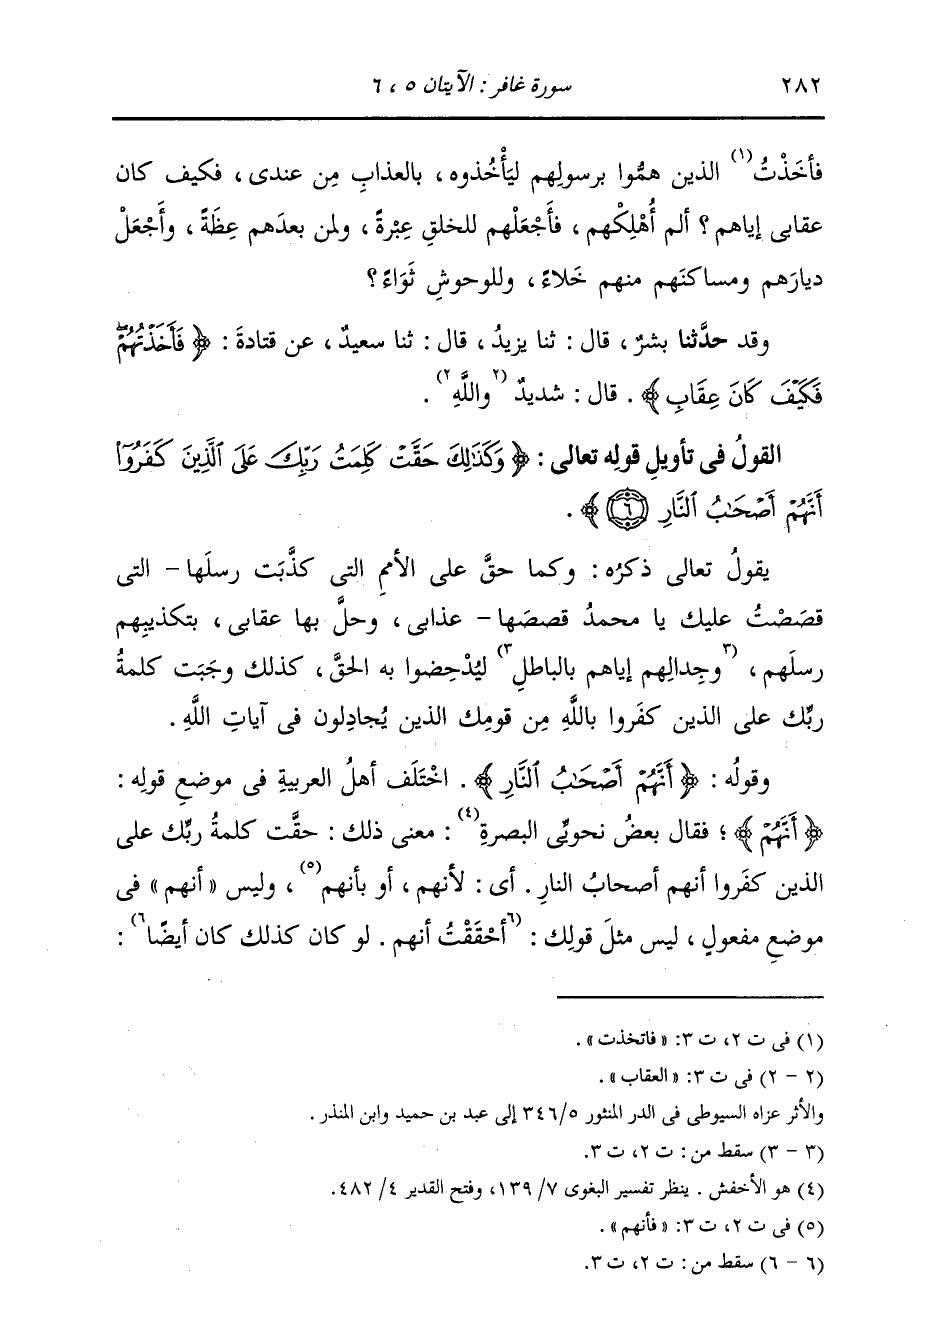 ٢٨٢ سورة غافر : الآيتان ٥ ، ٦
فأخَذْتُ(١) الذين همُّوا برسولِهم ليَأْخُذوه ، بالعذابِ مِن عندى ، فكيف كان
عقابى إياهم ؟ ألم أُهْلِكْهم ، فأَجْعَلْهم للخلقِ عِبْرةً ، ولمن بعدَهم عِظَةً ، وأَجْعَلْ
ديارَهم ومساكنَهم منهم خَلاءً ، وللوحوشِ ثَوَاءً ؟
وقد حدَّثنا بشرٌ ، قال : ثنا يزيدُ ، قال : ثنا سعيدٌ ، عن قتادةَ : ﴿ فَأَخَذْتُهُمْ ۖ
فَكَيْفَ كَانَ عِقَابِ ﴾ . قال : شديدٌ (٢ واللَّهِ ٢) .
القولُ فى تأويلِ قولِه تعالى : ﴿ وَكَذَٰلِكَ حَقَّتْ كَلِمَتُ رَبِّكَ عَلَى ٱلَّذِينَ كَفَرُوٓا۟
أَنَّهُمْ أَصْحَـٰبُ ٱلنَّارِ ٦ ﴾ .
يقولُ تعالى ذكرُه : وكما حقَّ على الأممِ التى كذَّبَت رسلَها - التى
قصَصْتُ عليك يا محمدُ قصصَها - عذابى ، وحلَّ بها عقابى ، بتكذيبِهم
رسلَهم ، (٣ وجِدالِهم إياهم بالباطلِ ٣) ليُدْحِضوا به الحقَّ ، كذلك وجَبَت كلمةُ
ربِّك على الذين كفَروا باللَّهِ مِن قومِك الذين يُجادِلون فى آياتِ اللَّهِ .
وقولُه : ﴿ أَنَّهُمْ أَصْحَـٰبُ ٱلنَّارِ ﴾ . اخْتَلَف أهلُ العربيةِ فى موضعِ قولِه :
﴿ أَنَّهُمْ ﴾ ؛ فقال بعضُ نحويِّى البصرةِ(٤) : معنى ذلك : حقَّت كلمةُ ربِّك على
الذين كفَروا أنهم أصحابُ النارِ . أى : لأنهم ، أو بأنهم(٥) ، وليس « أنهم » فى
موضعِ مفعولٍ ، ليس مثلَ قولِك : (٦ أحْقَقْتُ أنهم . لو كان كذلك كان أيضًا ٦) :
(١) فى ت ٢، ت ٣: « فاتخذت » .
(٢ - ٢) فى ت ٣: « العقاب » .
والأثر عزاه السيوطى فى الدر المنثور ٣٤٦/٥ إلى عبد بن حميد وابن المنذر .
(٣ - ٣) سقط من : ت ٢، ت ٣.
(٤) هو الأخفش . ينظر تفسير البغوى ٧/ ١٣٩، وفتح القدير ٤/ ٤٨٢.
(٥) فى ت ٢، ت ٣: « فأنهم » .
(٦ - ٦) سقط من : ت ٢، ت ٣.